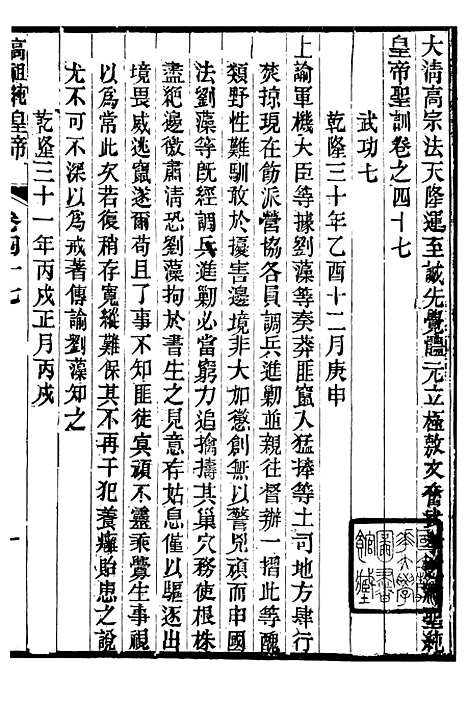 大清高宗法天隆運至誠先覺體元立極敷文奮武聖純
皇帝聖訓卷之四十七
武功七
乾隆三十年乙酉十二月庚申
上諭軍機大臣等據劉藻等奏莽匪竄入猛捧等土司地方肆行
焚掠現在飭派營協各員調兵進剿並親往督辦一摺此等醜
類野性難馴敢於擾害邊境非大加懲創無以警兇頑而申國
法劉藻等旣經調兵進剿必當窮力追擒擣其巢穴務使根株
盡絕邊徼肅清恐劉藻拘於書生之見意存姑息僅以驅逐出
境畏威逃竄遂爾苟且了事不知匪徒㝠頑不靈乘釁生事視
以爲常此次若復稍存寬縱難保其不再干犯養癰貽患之說
尤不可不深以爲戒著傳諭劉藻知之
乾隆三十一年丙戌正月丙戌
高祖純皇帝
卷四十七
一